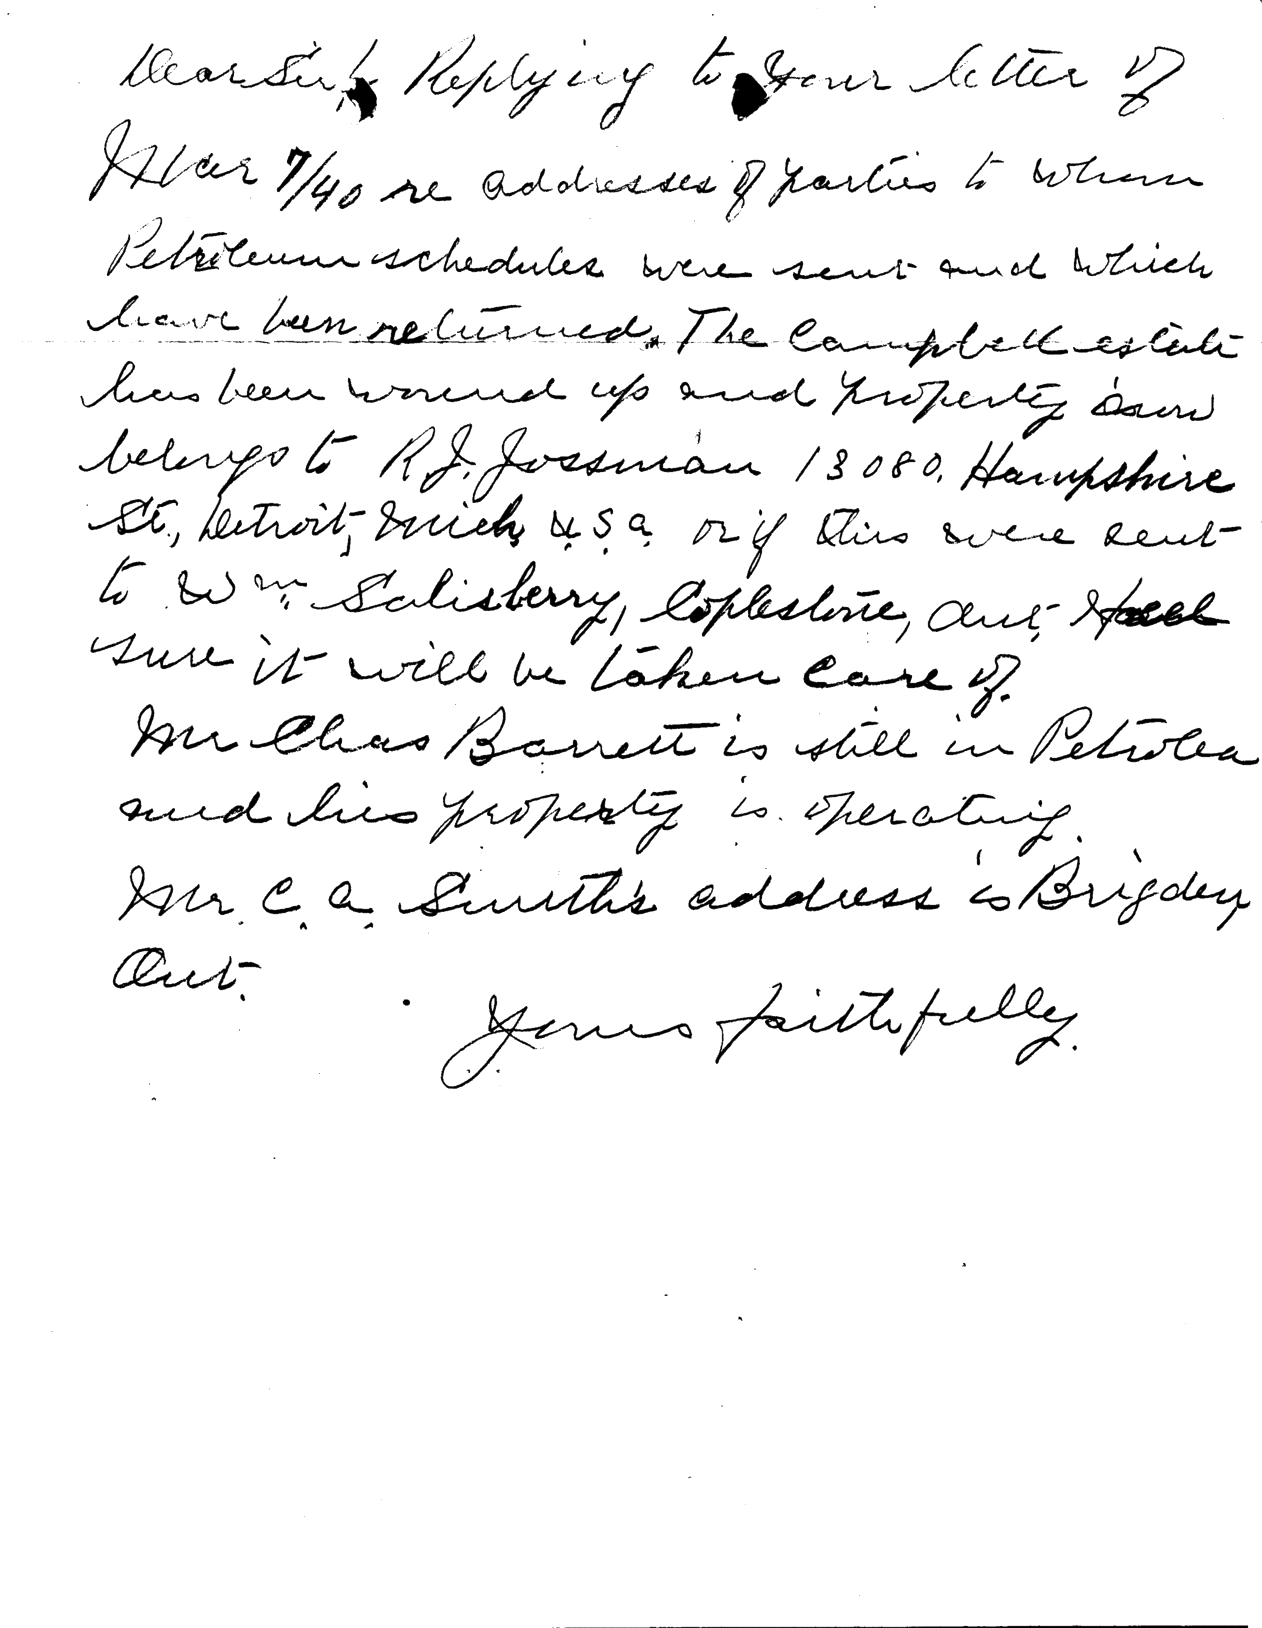 Dear Sir: Replying to your letter of
Mar 7/40 re addresses of parties to whom
Petroleum schedules were sent and which
have been returned. The Campbell estate
has been wound up and property now
belongs to R.J. Jossman 13080. Hampshire
St., Detroit, Mich, U.S.A. or if this were sent
to Wm. Salisberry, Coplestone, Ont,
sure it will be taken care of.
Mr Chas Barrett is still in Petrolea
and his property is operating.
Mr. C. A. Smith's address is Brigden,
Ont.
Yours faithfully.